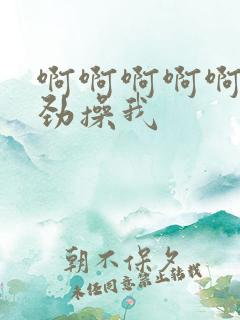 啊啊啊啊啊
劲操我
朝不保夕
未经同意禁止转载